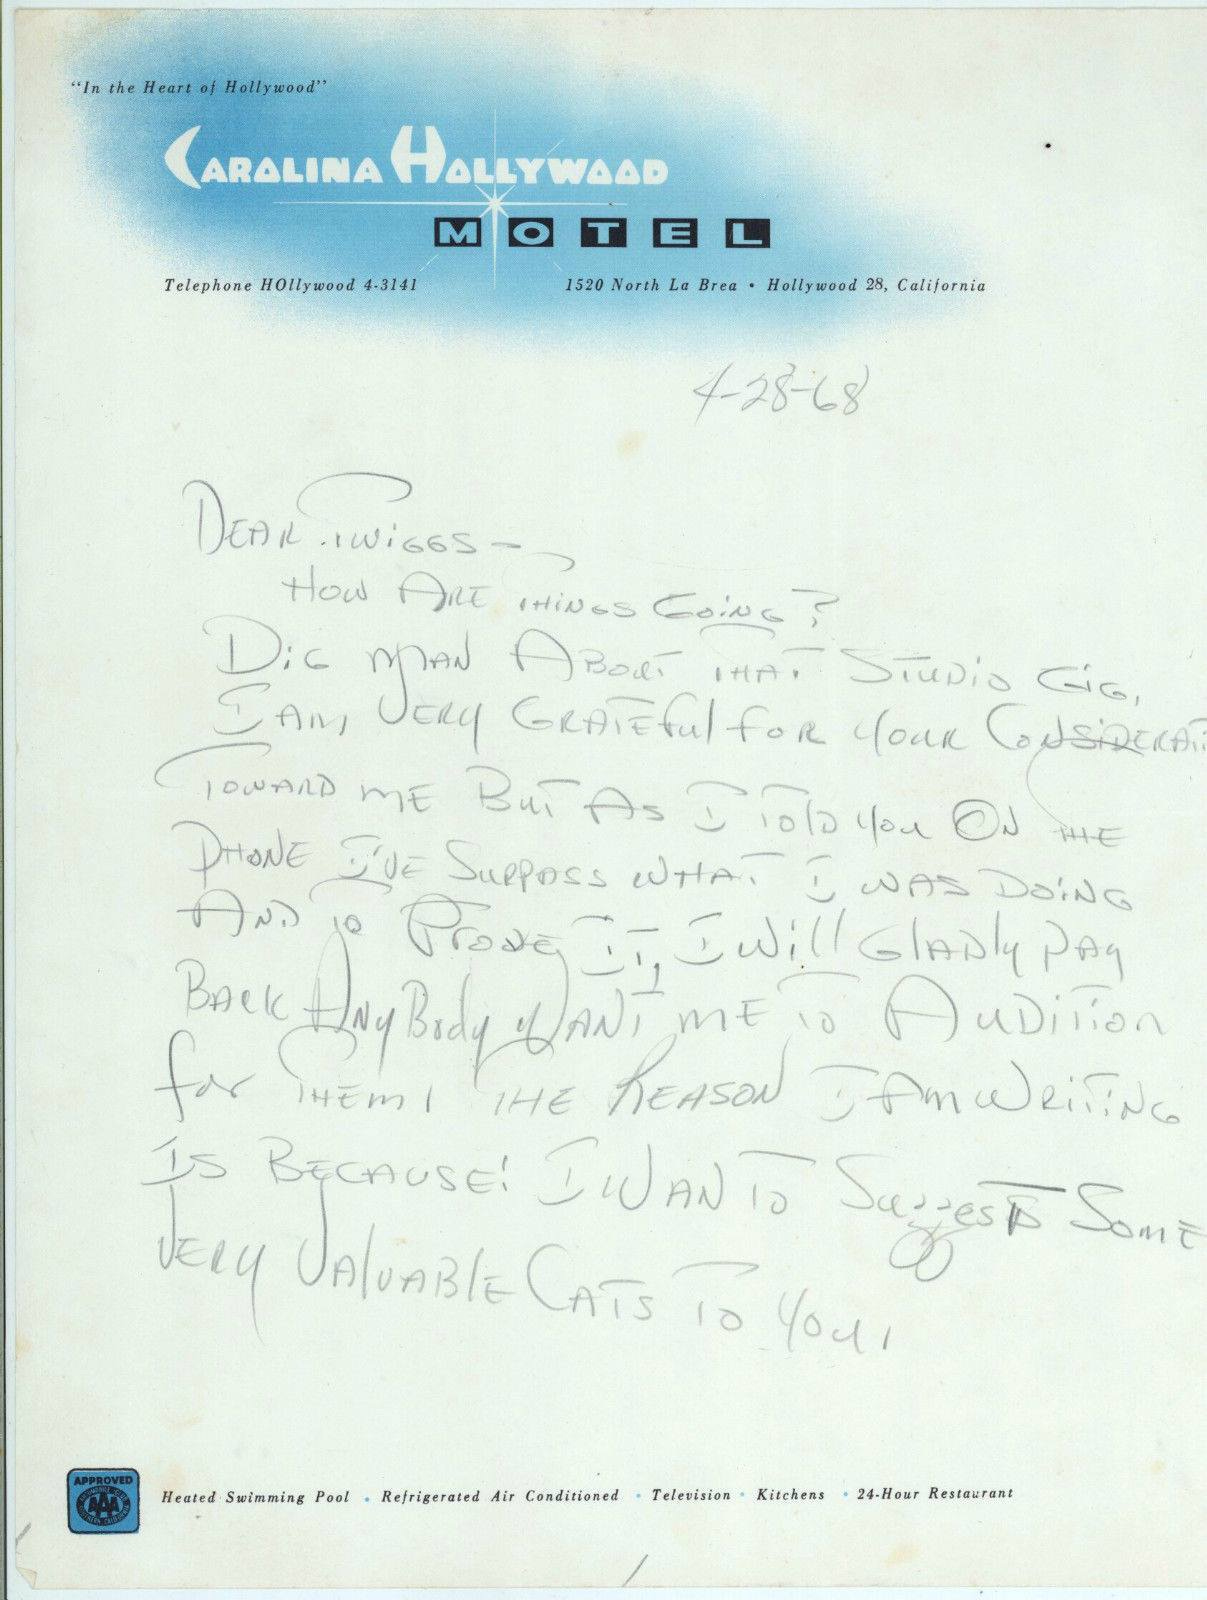 "In the Heart of Hollywood"
CAROLINA HOLLYWOOD
MOTEL
Telephone HOllywood 4-3141
1520 North La Brea • Hollywood 28, California
4-28-68
DEAR TWIGGS -
HOW ARE THINGS GOING?
DIG MAN ABOUT THAT STUDIO GIG,
I AM, VERY GRATEFUl FOR YOUR CONSIDERATI
TOWARD ME BUT AS I TOlD YOU ON THE
PHONE I'VE SURPASS WHAT I WAS DOING
AND TO PROVE IT, I Will GlADly PAY
BACK ANy Body WANT ME TO AUDITION
for THEM, THE REASON I AM WRITING
IS BECAUSE! I WANT TO SuggesT SOME
VERY VAlUABlE CATS TO YOU,
APPROVED
AAA
Heated Swimming Pool • Refrigerated Air Conditioned • Television • Kitchens • 24-Hour Restaurant